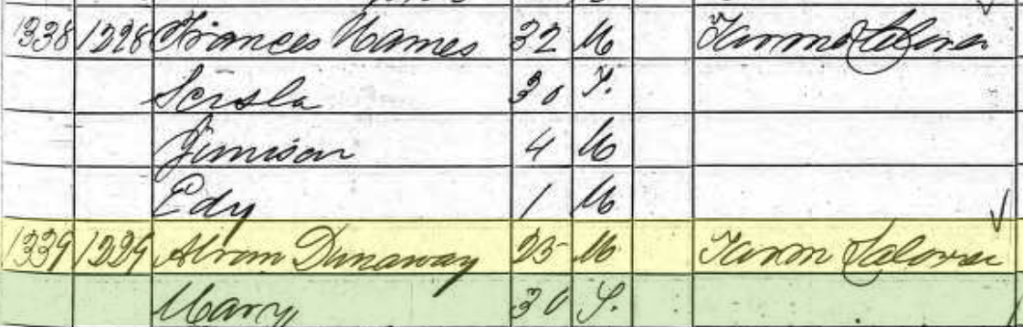 1338 1228 Frances Names 32 M Farm Laborer
Scisla 30 F.
Jimison 4 M
Edy 1 M
1339 1229 Abram Dunaway 25 M Farm Laborer
Mary 30 F.